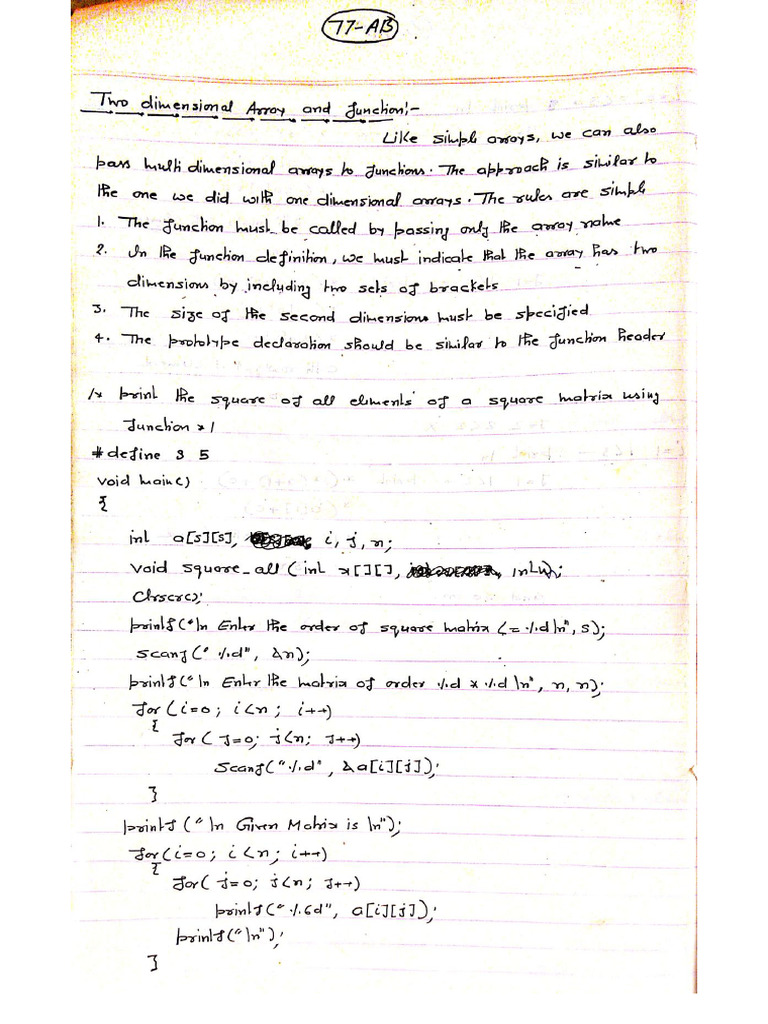 77-AB
Two dimensional Array and function:-
Like simple arrays, we can also
pass multi dimensional arrays to functions. The approach is similar to
the one we did with one dimensional arrays. The rules are simple
1. The function must be called by passing only the array name
2. In the function definition, we must indicate that the array has two
dimensions by including two sets of brackets
3. The size of the second dimensions must be specified
4. The prototype declaration should be similar to the function header
/* print the square of all elements of a square matrix using
function */
#define S 5
void main()
{
int a[S][S], i, j, n;
void square_all (int x[][], int);
Clrscr();
printf("\n Enter the order of square matrix <= %d\n", S);
scanf(" %d", &n);
printf("\n Enter the matrix of order %d x %d \n", n, n);
for (i=0; i<n; i++)
{
for ( j=0; j<n; j++)
scanf("%d", &a[i][j]);
}
printf ("\n Given Matrix is \n");
for(i=0; i<n; i++)
{
for( j=0; j<n; j++)
printf("%6d", a[i][j]);
printf("\n");
}